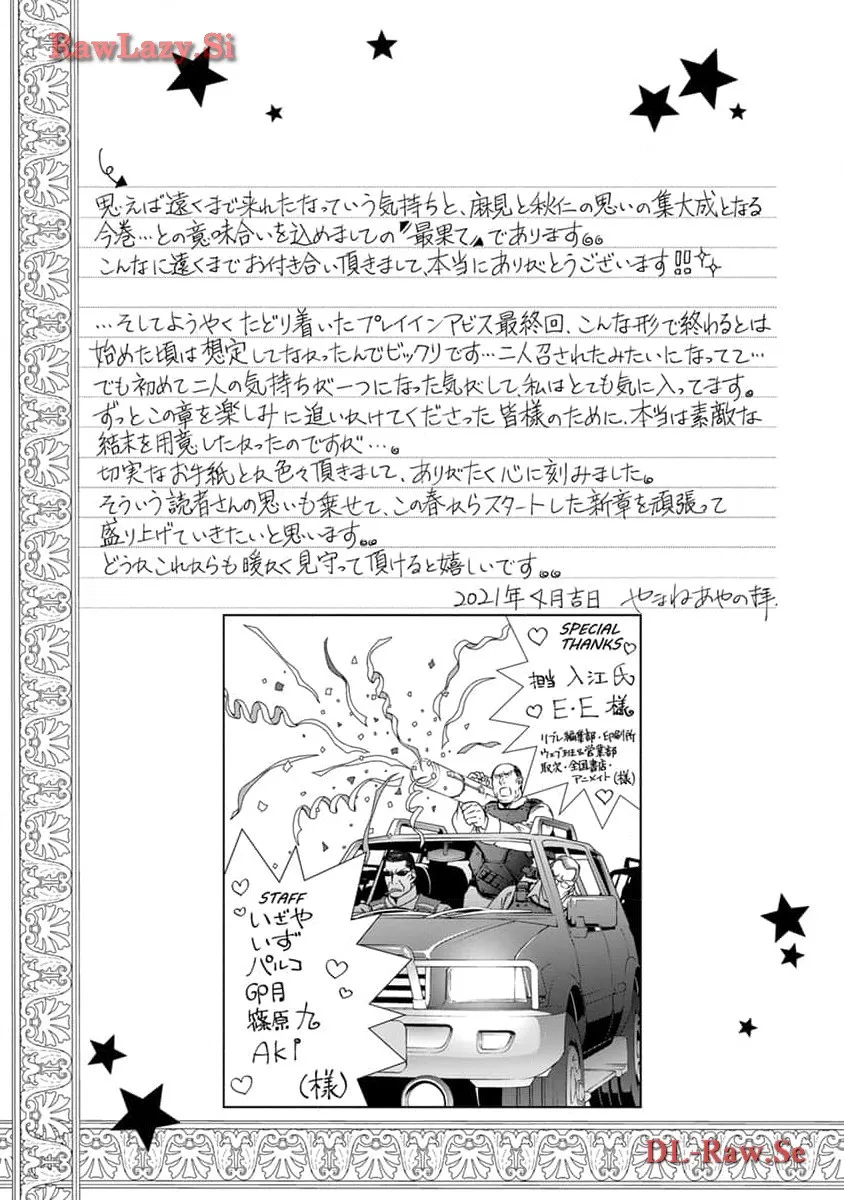 RawLazy.Si
思えば遠くまで来れたなっていう気持ちと、麻見と秋仁の思いの集大成となる
今巻…との意味合いを込めましての『最果て』であります。。
こんなに遠くまでお付き合い頂きまして、本当にありがとうございます!!
…そしてようやくたどり着いたプレイインアビス最終回、こんな形で終わるとは
始めた頃は想定してなかったんでビックリです…二人召されたみたいになってて…
でも初めて二人の気持ちが一つになった気がして、私はとても気に入ってます。
ずっとこの章を楽しみに追いかけてくださった皆様のために、本当は素敵な
結末を用意したかったのですが…。
切実なお手紙とか色々頂きまして、ありがたく心に刻みました。
そういう読者さんの思いも乗せて、この春からスタートした新章を頑張って
盛り上げていきたいと思います。。
どうかこれからも暖かく見守って頂けると嬉しいです。。
2021年4月吉日 やまねあやの拝.
SPECIAL
THANKS
担当 入江氏
E・E様
リブレ編集部・印刷所
ウェブ班&営業部
取次・全国書店・
アニメイト(様)
STAFF
いざや
いず
パルコ
GP月
篠原九
AKi
(様)
DL-Raw.Se